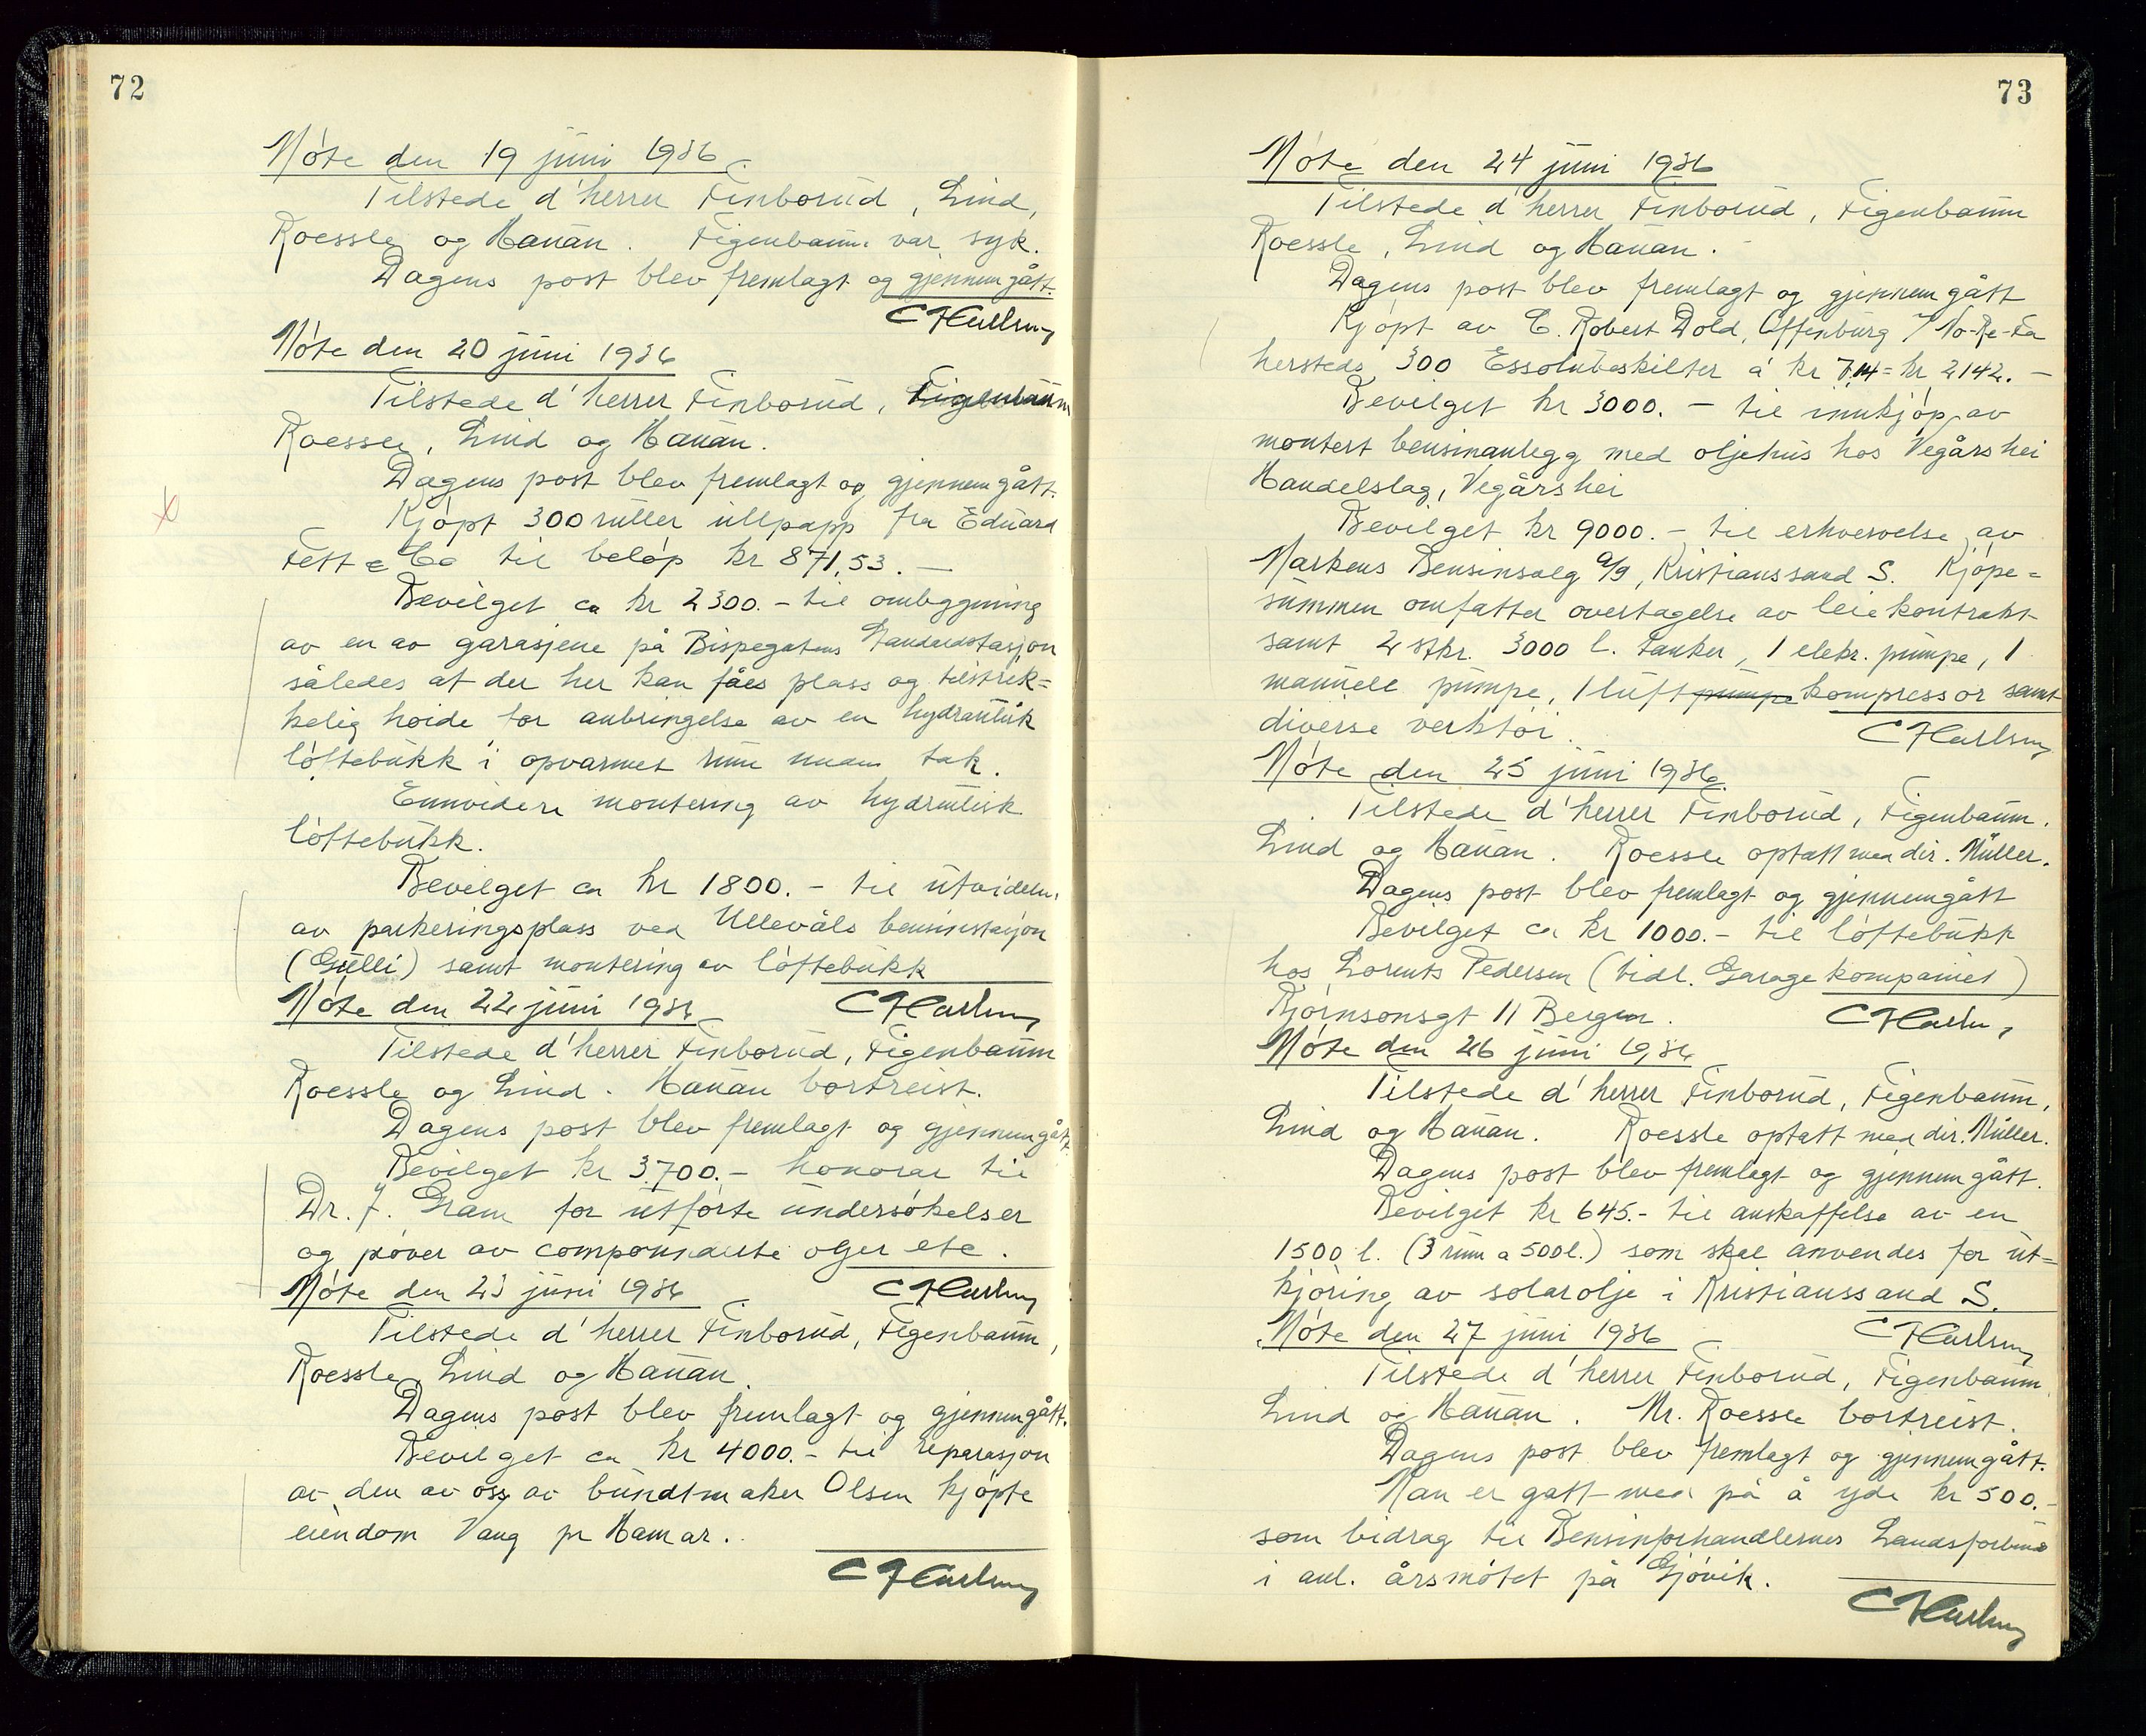 72
Møte den 19 juni 1936
Tilstede d'herrer Finborud, Lind,
Roessle og Hauan. Figenbaum var syk.
Dagens post blev fremlagt og gjennemgått.
Møte den 20 juni 1936
Tilstede d'herrer Finborud, Figenbaum
Roessle, Lind og Hauan.
Dagens post blev fremlagt og gjennemgått.
Kjøpt 300 ruller ullpapp fra Eduard
Fett & Co til beløp kr 871,53.—
Bevilget ca kr 2300.- til ombygning
av en av garasjene på Bispegatens Standardstasjon
således at der her kan fåes plass og tilstrek=
kelig høide for anbringelse av en hydraulisk
løftebukk i opvarmet rum under tak.
Ennvidere montering av hydraulisk
løftebukk.
Bevilget ca kr 1800.- til utvidelse
av parkeringsplass ved Ullevåls bensinstasjon
(Gulli) samt montering av løftebukk
Møte den 22 juni 1936
Tilstede d'herrer Finborud, Figenbaum
Roessle og Lind. Hauan bortreist.
Dagens post blev fremlagt og gjennemgått
Bevilget kr 3.700.- honorar til
Dr. J. Gram for utførte undersøkelser
og prøver av compounderte oljer etc.
Møte den 23 juni 1936
Tilstede d'herrer Finborud, Figenbaum,
Roessle, Lind og Hauan.
Dagens post blev fremlagt og gjennemgått.
Bevilget ca kr 4000.- til reparasjon
av den av oss av bundtmaker Olsen kjøpte
eiendom Vang pr Hamar.
73
Møte den 24 juni 1936
Tilstede d'herrer Finborud, Figenbaum
Roessle, Lind og Hauan.
Dagens post blev fremlagt og gjennemgått
Kjøpt av C. Robert Dold, Offenburg v/ No-Re-Fa
hersteds 300 Essolubeskilter á kr 7.14 = kr 2142.—
Bevilget kr 3000.- til innkjøp av
montert bensinanlegg med oljehus hos Vegårshei
Handelslag, Vegårshei
Bevilget kr 9000.- til erhvervelse av
Markens Bensinsalg A/S, Kristianssand S. Kjøpe=
summen omfatter overtagelse av leiekontrakt
samt 2 stkr. 3000 l. tanker, 1 elektr. pumpe, 1
manuell pumpe, 1 luftpumpe kompressor samt
diverse verktøi.
Møte den 25 juni 1936
Tilstede d'herrer Finborud, Figenbaum.
Lind og Hauan. Roessle optatt med dir. Müller.
Dagens post blev fremlagt og gjennemgått
Bevilget ca kr 1000.- til løftebukk
hos Lorents Pedersen (tidl. Garagekompaniet)
Bjørnsonsgt 11 Bergen.
Møte den 26 juni 1936
Tilstede d'herrer Finborud, Figenbaum,
Lind og Hauan. Roessle optatt med dir. Müller.
Dagens post blev fremlagt og gjennemgått.
Bevilget kr 645.- til anskaffelse av en
1500 l. (3 rum a 500 l.) som skal anvendes for ut=
kjøring av solarolje i Kristianssand S.
Møte den 27 juni 1936
Tilstede d'herrer Finborud, Figenbaum
Lind og Hauan. Mr. Roessle bortreist.
Dagens post blev fremlagt og gjennemgått.
Man er gått med på å yde kr 500.-
som bidrag til Bensinforhandlernes Landsforbund
i anl. årsmøtet på Gjøvik.